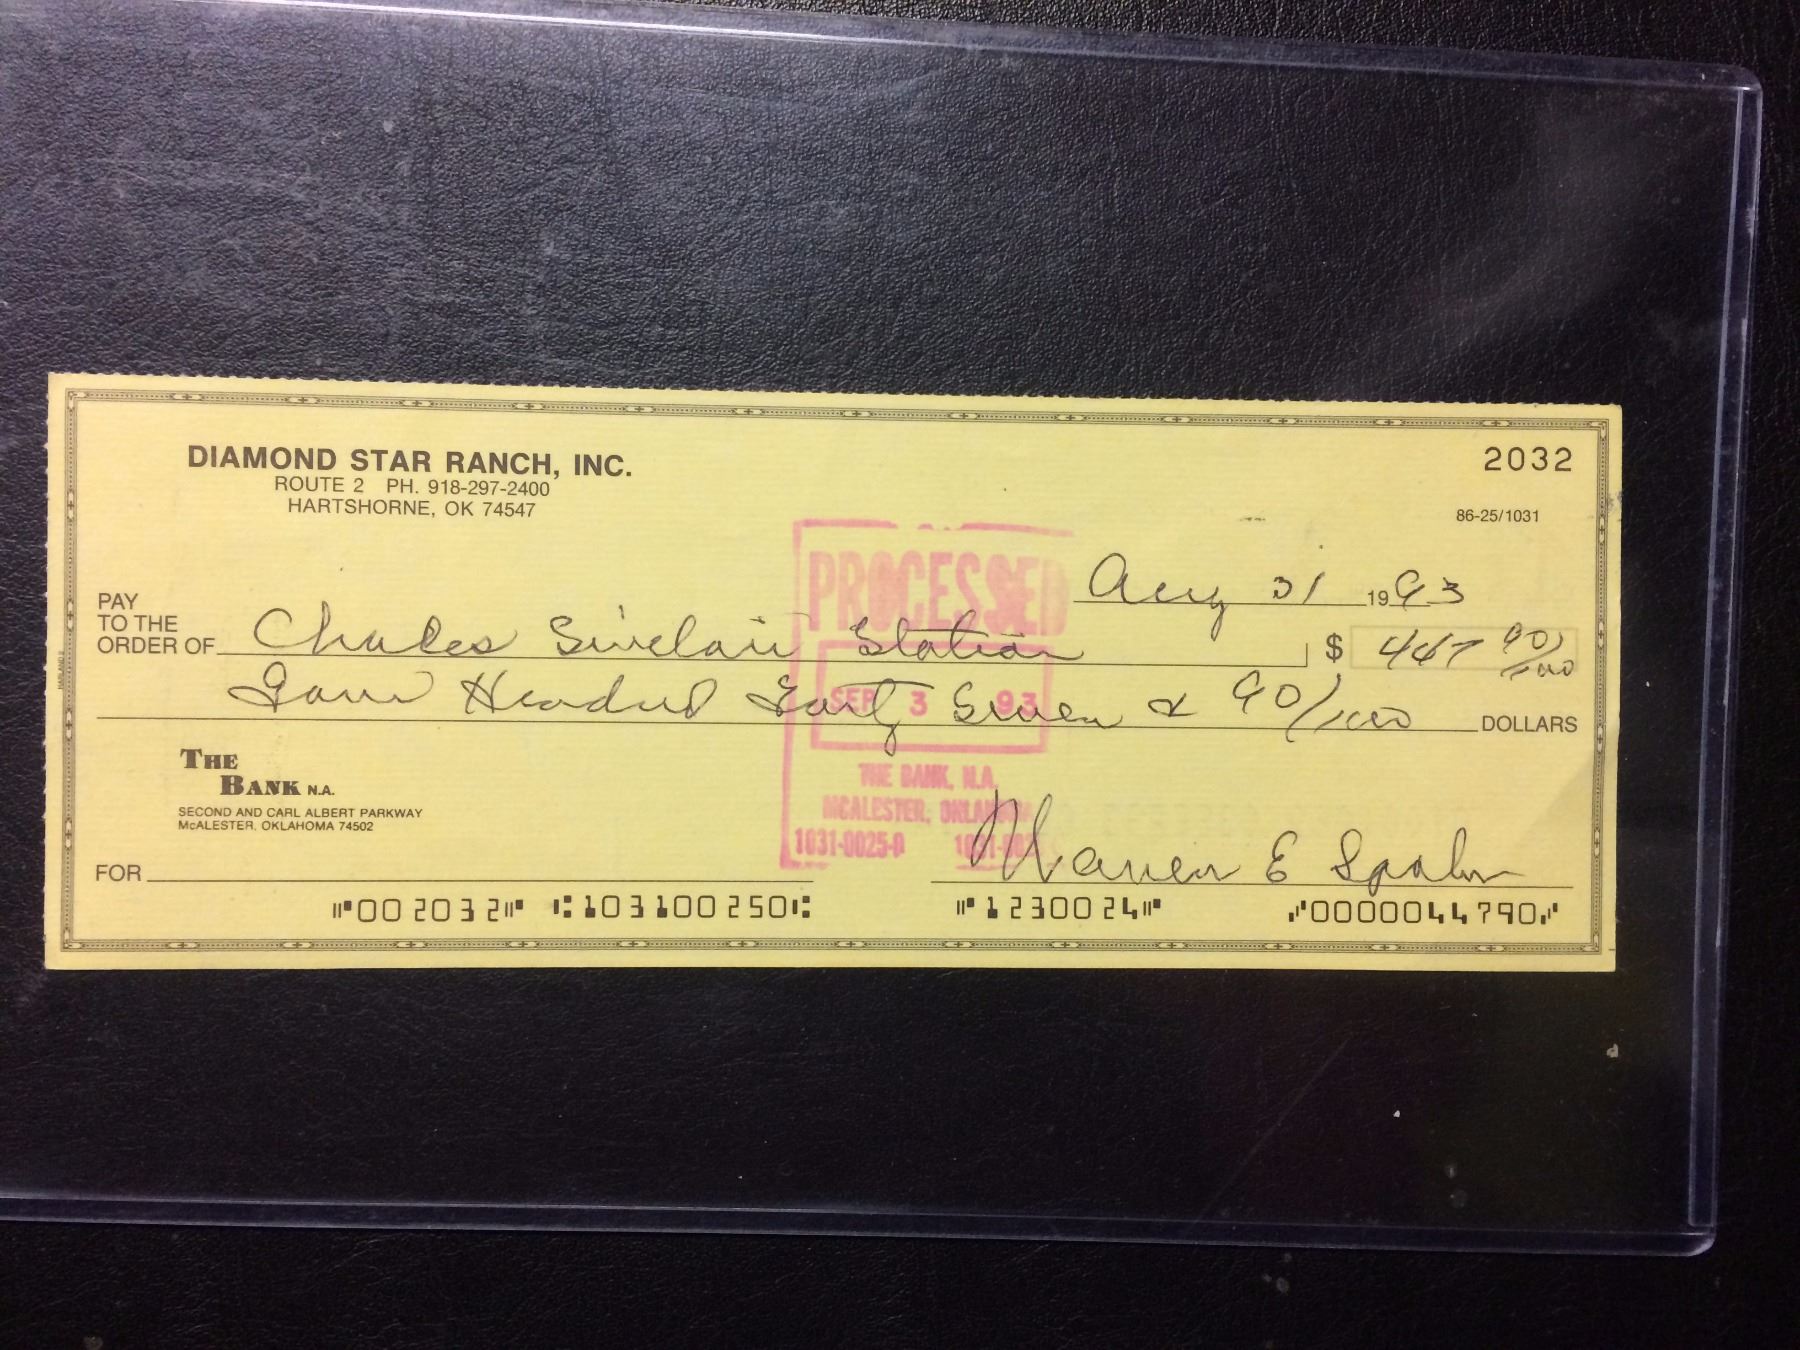 DIAMOND STAR RANCH, INC.
ROUTE 2 PH. 918-297-2400
HARTSHORNE, OK 74547
2032
86-25/1031
PROCESSED
Aug 31 1993
PAY TO THE ORDER OF Charles Sinclair Station $ 447 90/100
Four Hundred Forty Seven & 90/100 DOLLARS
SEP 3 93
THE BANK N.A.
SECOND AND CARL ALBERT PARKWAY
McALESTER, OKLAHOMA 74502
THE BANK, N.A.
MCALESTER, OKLAHOMA
1031-0025-0
Warren E Spahn
FOR
⑈002032⑈ ⑆103100250⑆ ⑈1230024⑈ ⑇0000044790⑇